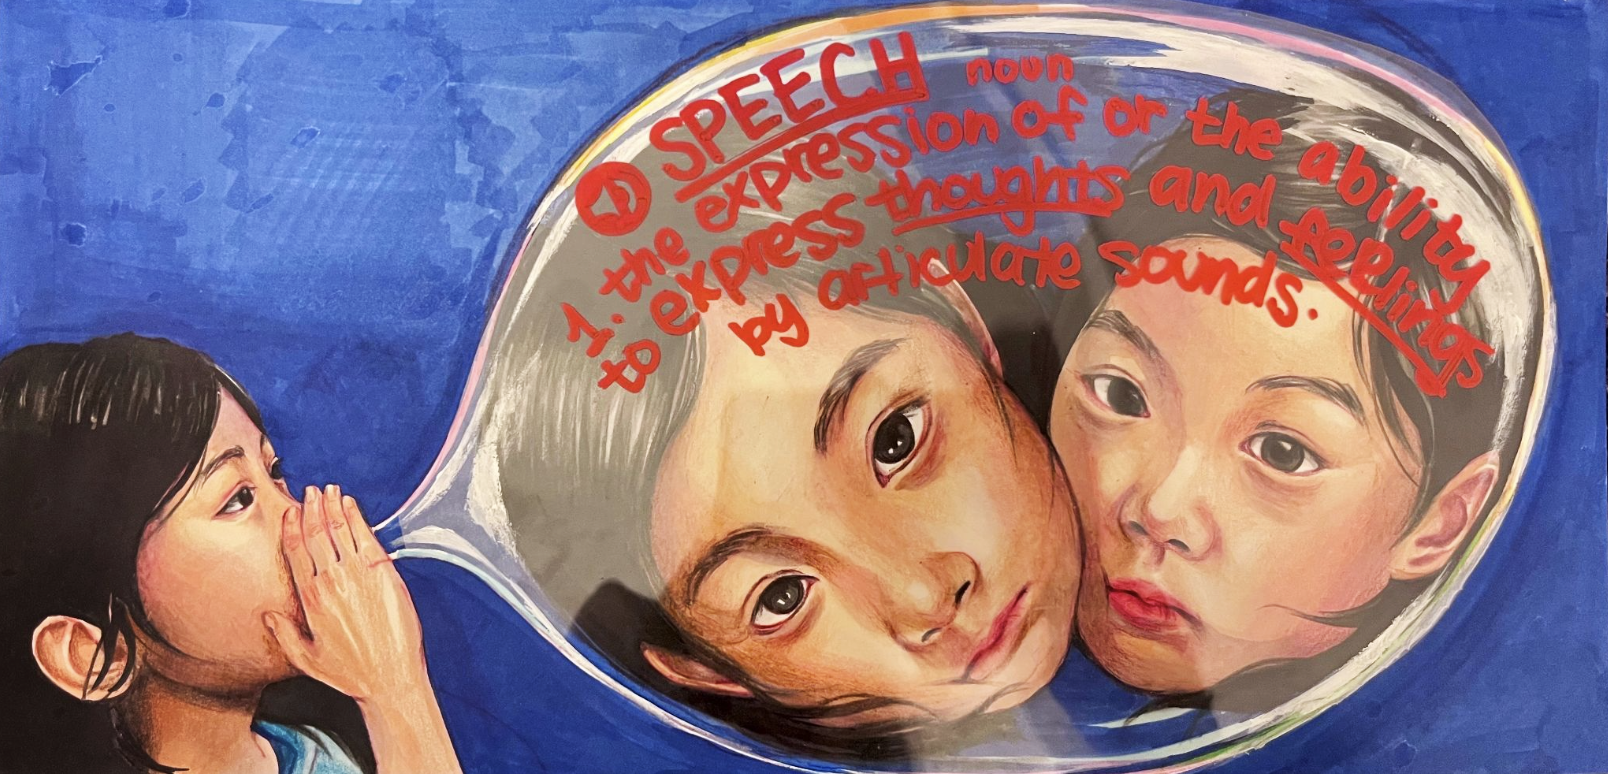 SPEECH noun
1. the expression of or the ability
to express thoughts and feelings
by articulate sounds.